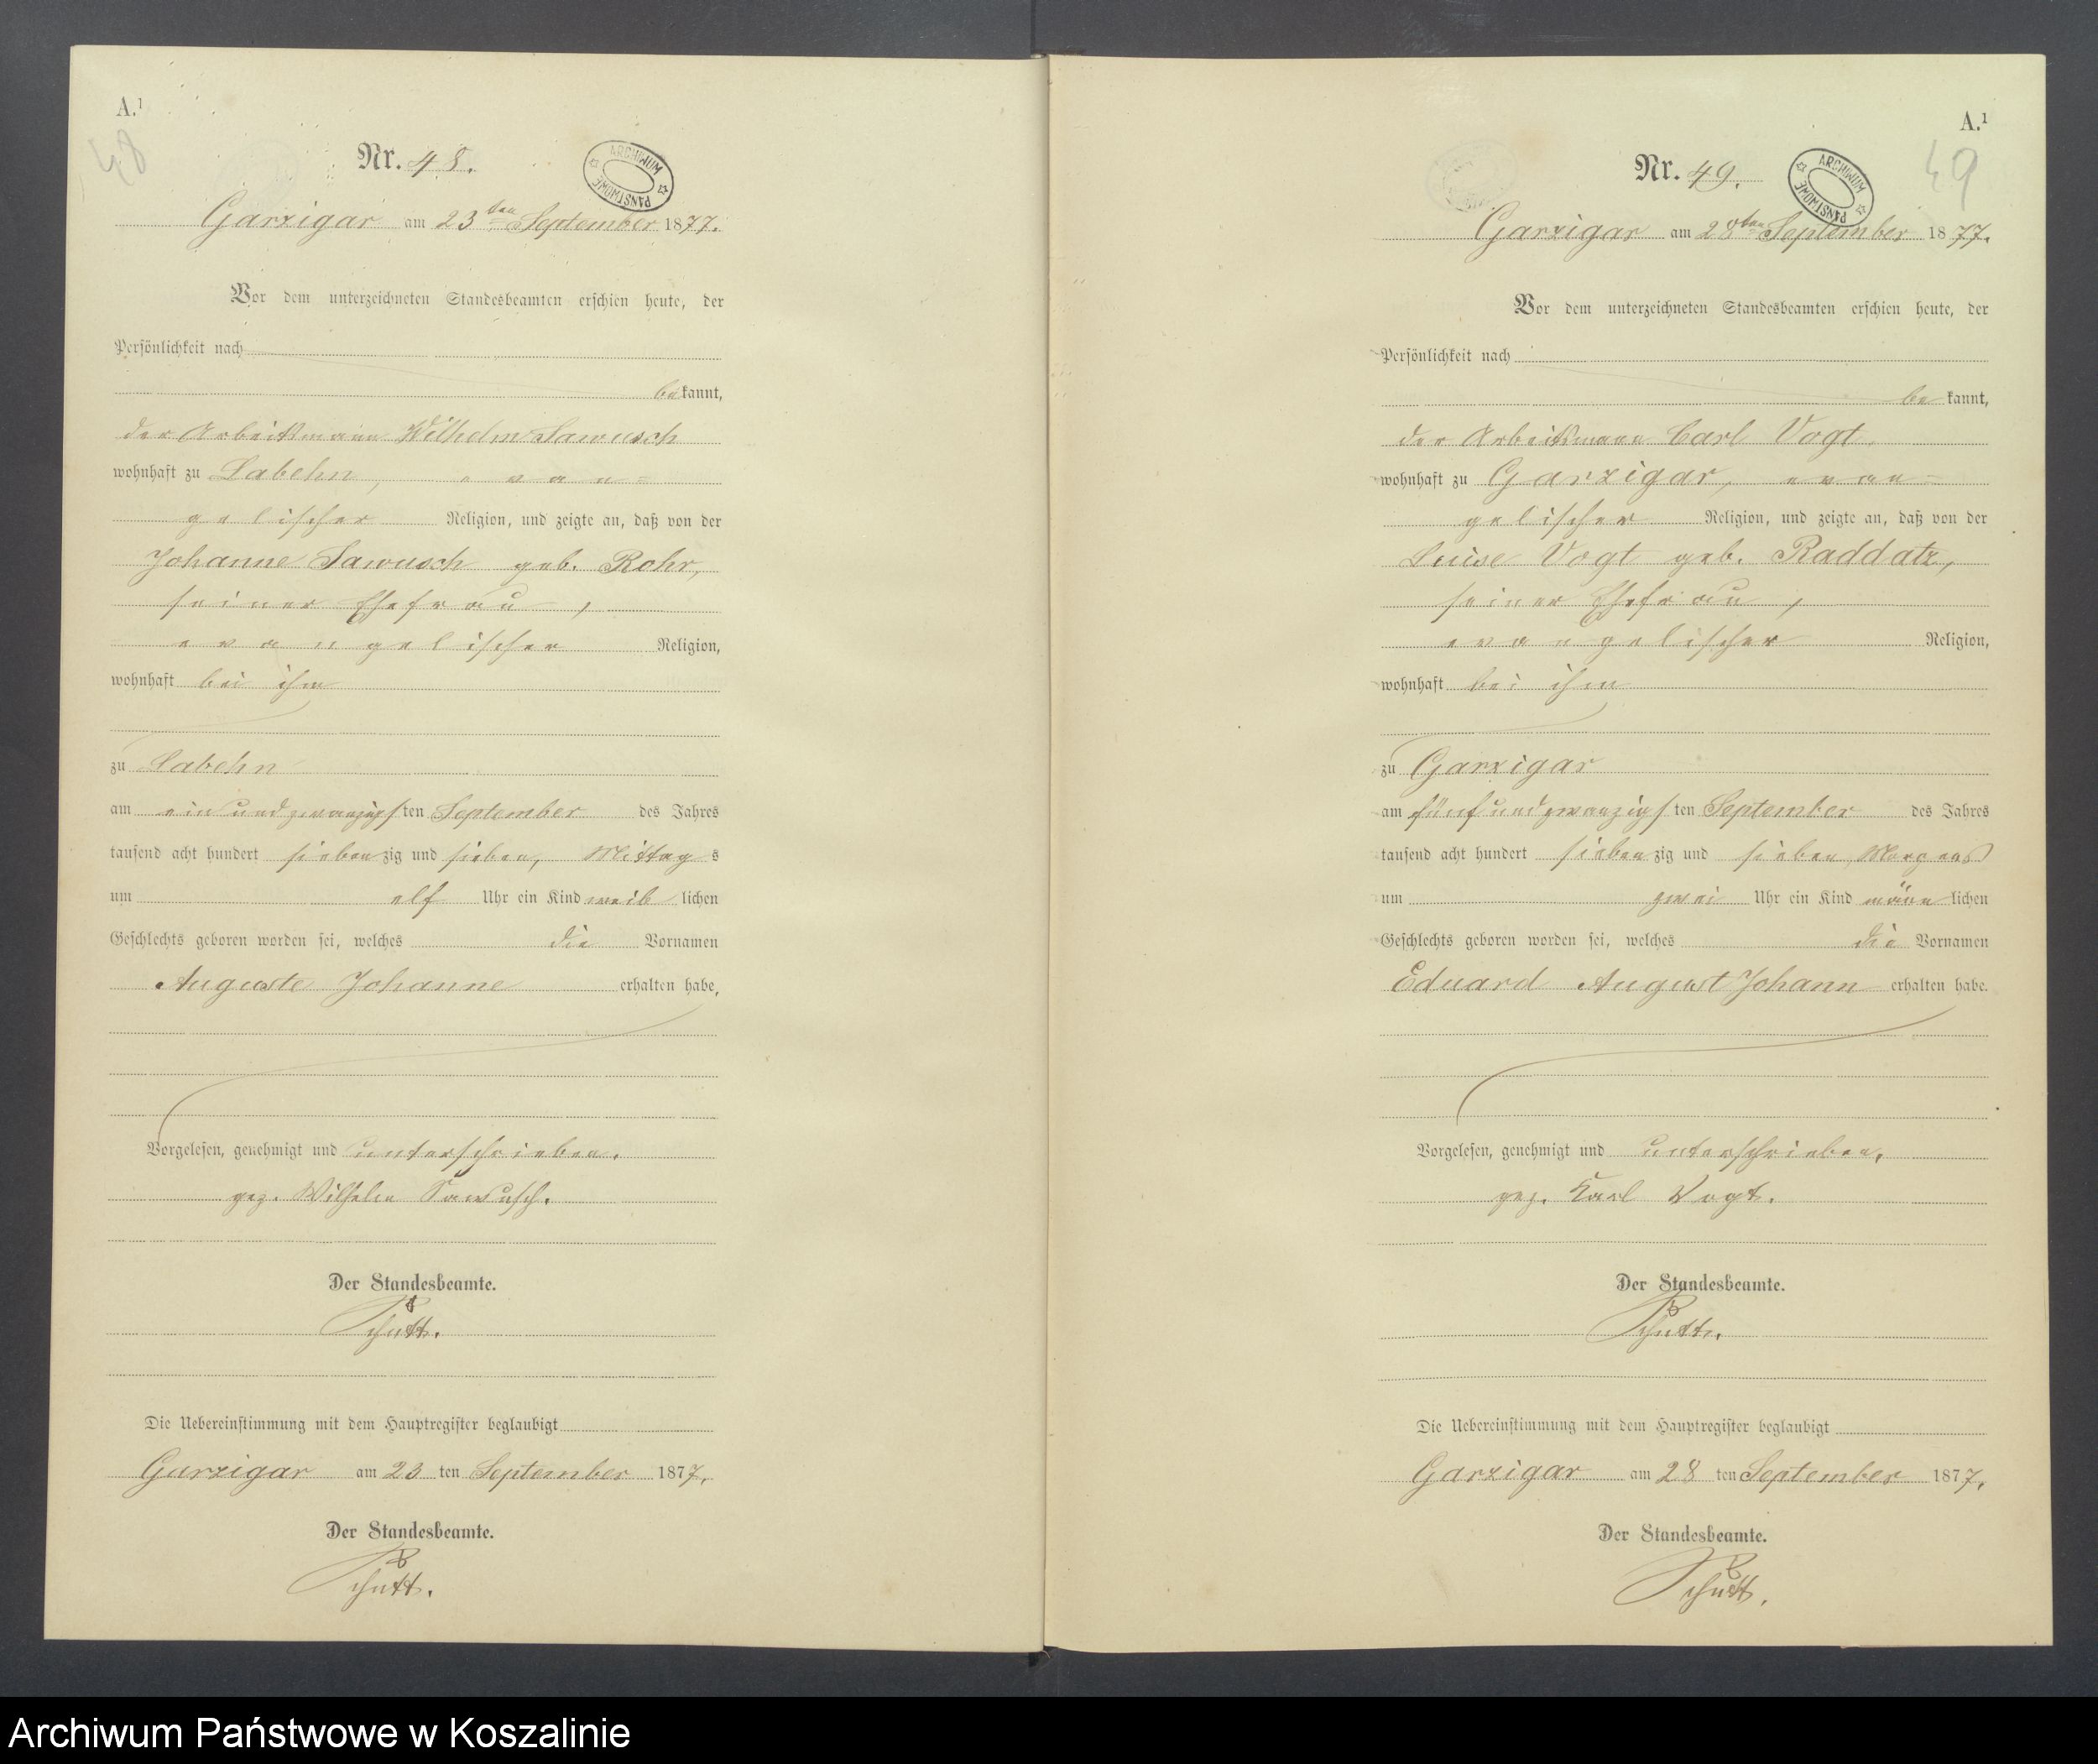 A.¹
48
Nr. 48.
ARCHIWUM PAŃSTWOWE
Garzigar am 23ten September 1877.
Vor dem unterzeichneten Standesbeamten erschien heute, der
Persönlichkeit nach
bekannt,
der Arbeitsmann Wilhelm Sawusch
wohnhaft zu Labehn, evan=
gelischer Religion, und zeigte an, daß von der
Johanne Sawusch geb. Rohr,
seiner Ehefrau,
evangelischer Religion,
wohnhaft bei ihm
zu Labehn
am einundzwanzigsten September des Jahres
tausend acht hundert siebenzig und sieben, Mittags
um elf Uhr ein Kind weiblichen
Geschlechts geboren worden sei, welches die Vornamen
Auguste Johanne erhalten habe,
Vorgelesen, genehmigt und unterschrieben.
gez. Wilhelm Sawusch.
Der Standesbeamte.
Schütt.
Die Uebereinstimmung mit dem Hauptregister beglaubigt
Garzigar am 23 ten September 1877.
Der Standesbeamte.
Schütt.
A.¹
49
Nr. 49.
ARCHIWUM PAŃSTWOWE
Garzigar am 28ten September 1877.
Vor dem unterzeichneten Standesbeamten erschien heute, der
Persönlichkeit nach
bekannt,
der Arbeitsmann Carl Vogt
wohnhaft zu Garzigar, evan=
gelischer Religion, und zeigte an, daß von der
Luise Vogt geb. Raddatz,
seiner Ehefrau,
evangelischer Religion,
wohnhaft bei ihm
zu Garzigar
am fünfundzwanzigsten September des Jahres
tausend acht hundert siebenzig und sieben, Morgens
um zwei Uhr ein Kind männlichen
Geschlechts geboren worden sei, welches die Vornamen
Eduard August Johann erhalten habe.
Vorgelesen, genehmigt und unterschrieben.
gez. Karl Vogt.
Der Standesbeamte.
Schütt.
Die Uebereinstimmung mit dem Hauptregister beglaubigt
Garzigar am 28 ten September 1877.
Der Standesbeamte.
Schütt.
Archiwum Państwowe w Koszalinie